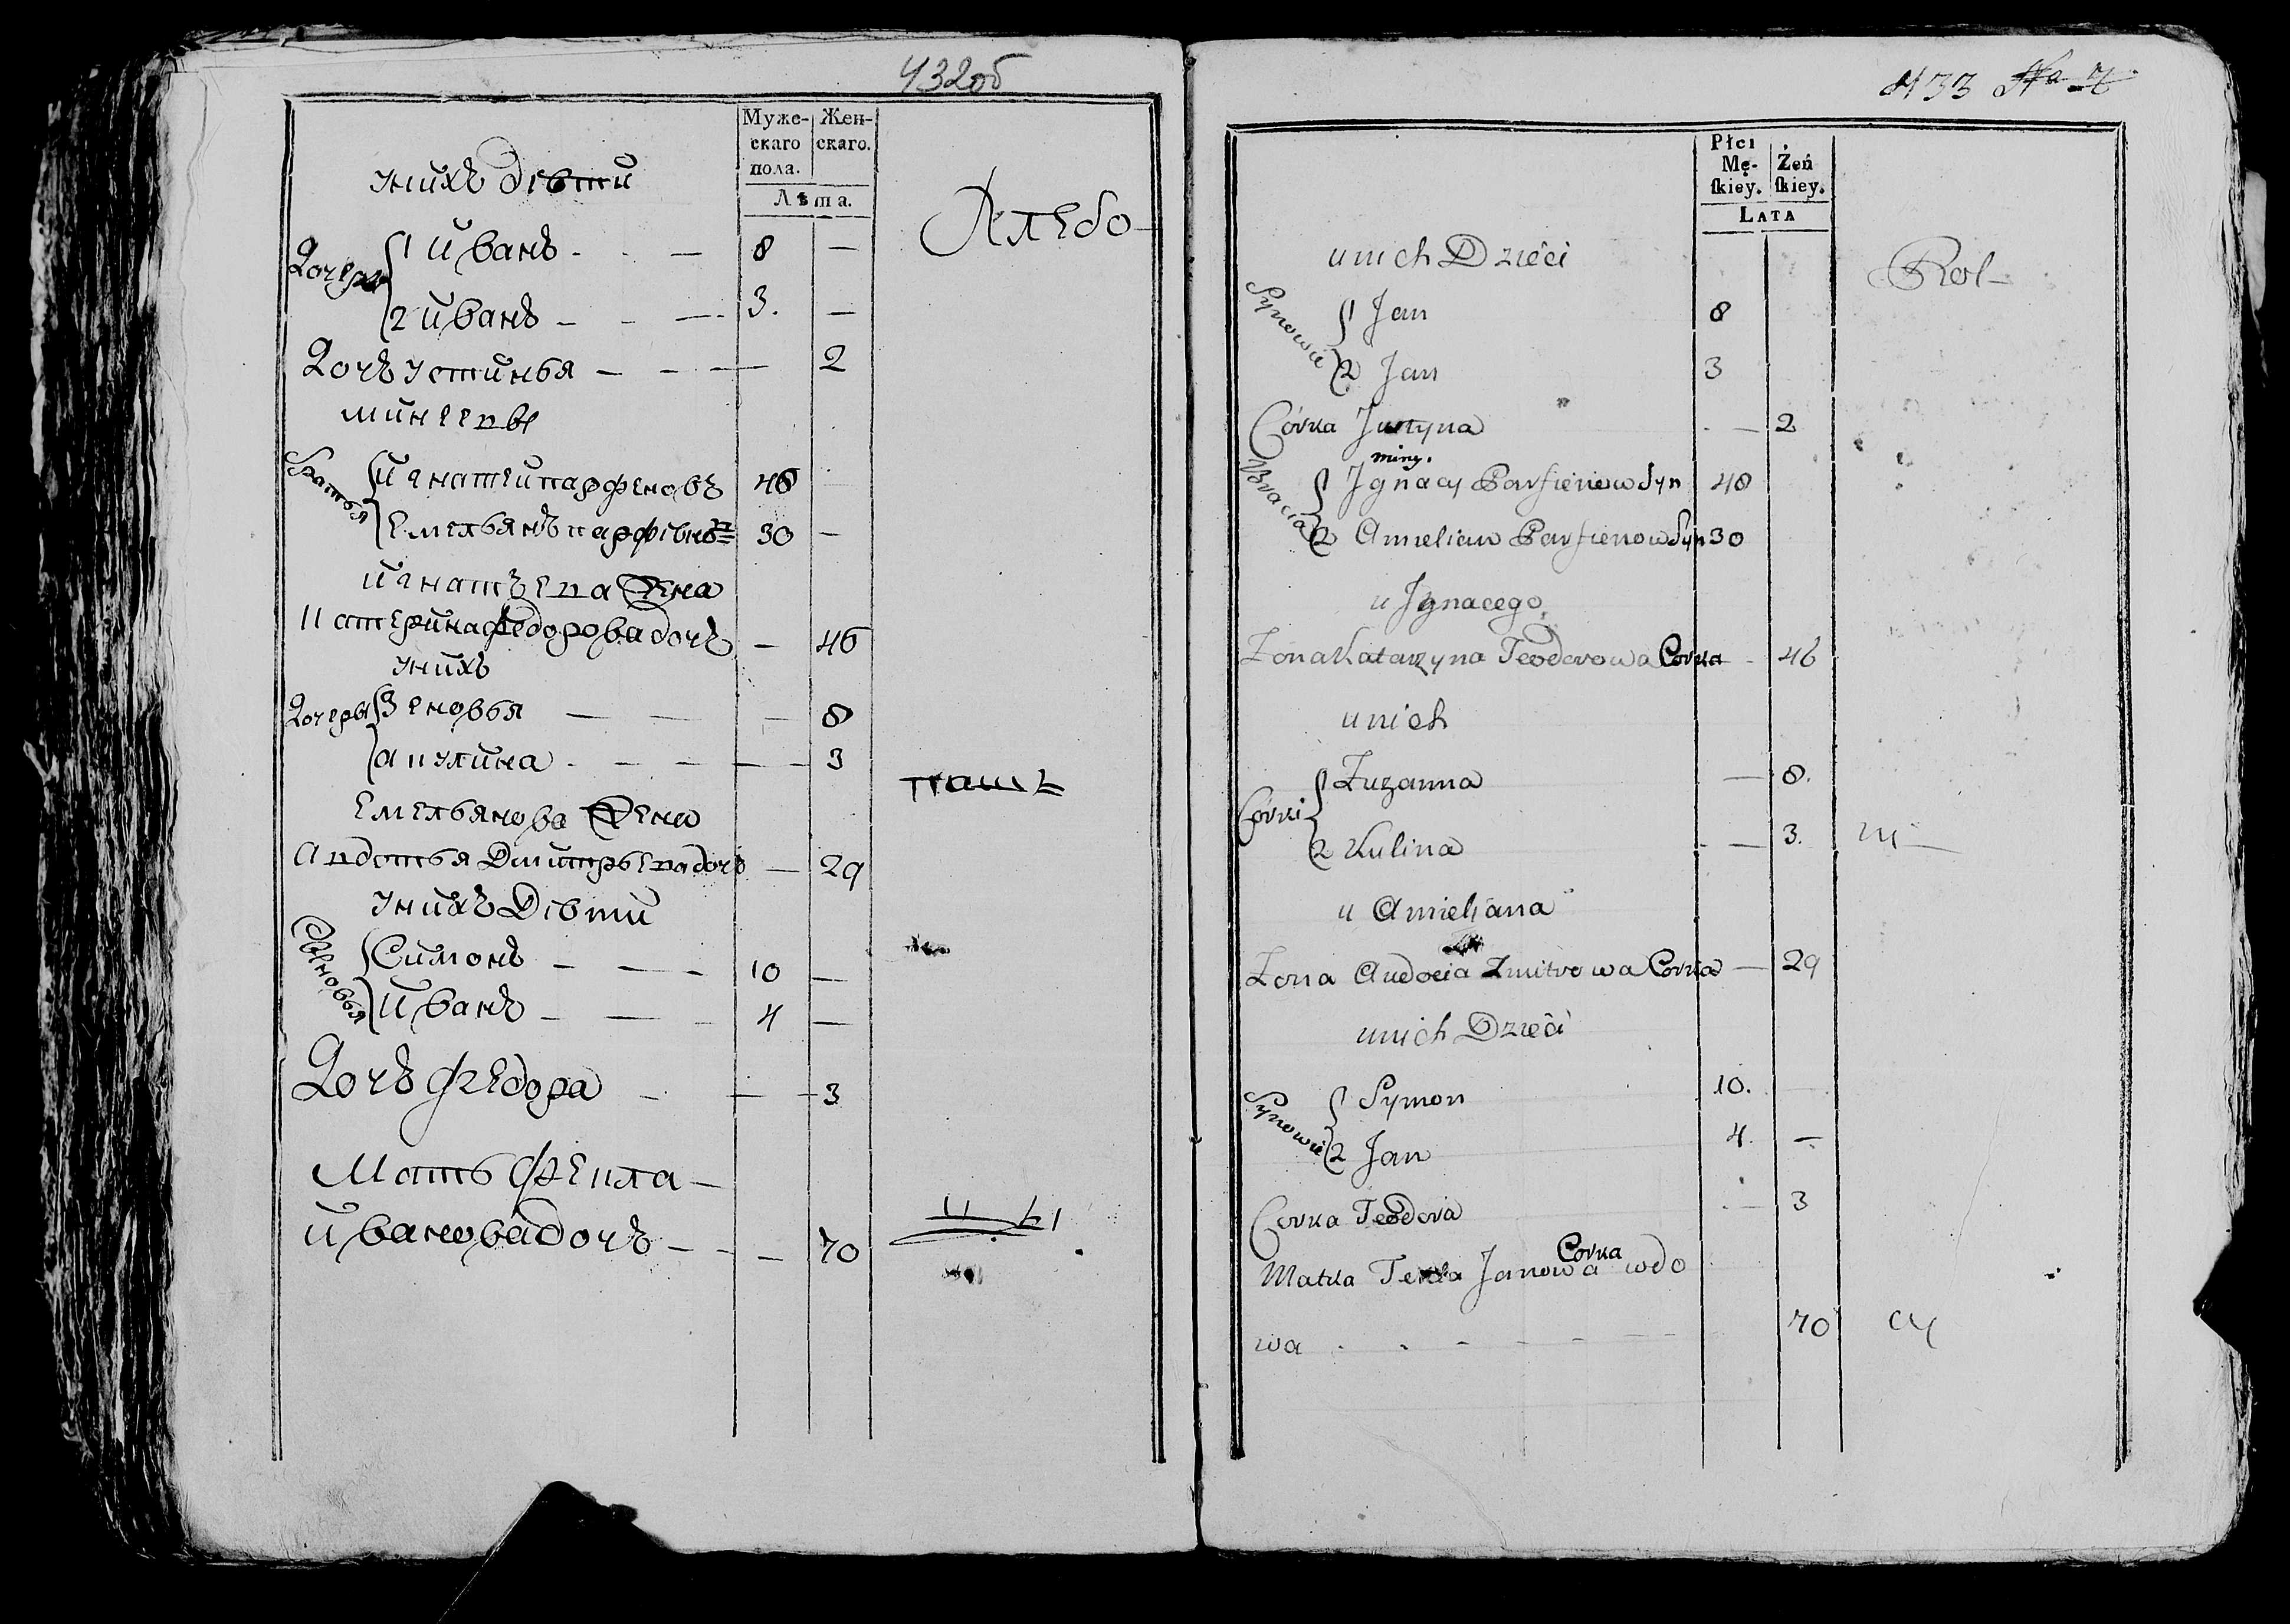 432об
Муже-
скаго
пола.
Жен-
скаго.
Лѣта.
унихъ дѣти
Хлебо-
Дочери
1 Иванъ 8 —
2 Иванъ 3. —
Дочь устинья — 2
братья
Игнатей парфеновъ 48
Емельянъ парфеновъ 30 —
Игнатьева жена
Катерина федорова дочь — 46
унихъ
Дочеры
Зеновья — 8
акулина — 3
пашъ
Емельянова жена
Авдотья Дмитрьева дочь — 29
унихъ Дѣти
Сыновья
Симонъ 10 —
Иванъ 4 —
Дочь Федора — 3
Мать Фекла
Иванова дочь 70
цы
433 No 7
Płci
Mę-
skiey.
Żeń
skiey.
LATA
unich Dzieci
Rol-
Synowie
1 Jan 8
2 Jan 3
Córka Justyna — 2
Bracia
Jgnacy Parfienow Syn 48
2 Amelian Parfienow Syn 30
u Jgnacego
Zona Katarzyna Teodorowa Corka 46
unich
Córki
Zuzanna — 8.
2 Kulina — 3.
ni—
u Amieliana
Zona Audocia Zmitrowa Corka — 29
unich Dzieci
Synowie
Symon 10.
2 Jan 4. —
Corka Teodora — 3
Matka Tekla Janowa Corka wdo
wa 70
cy